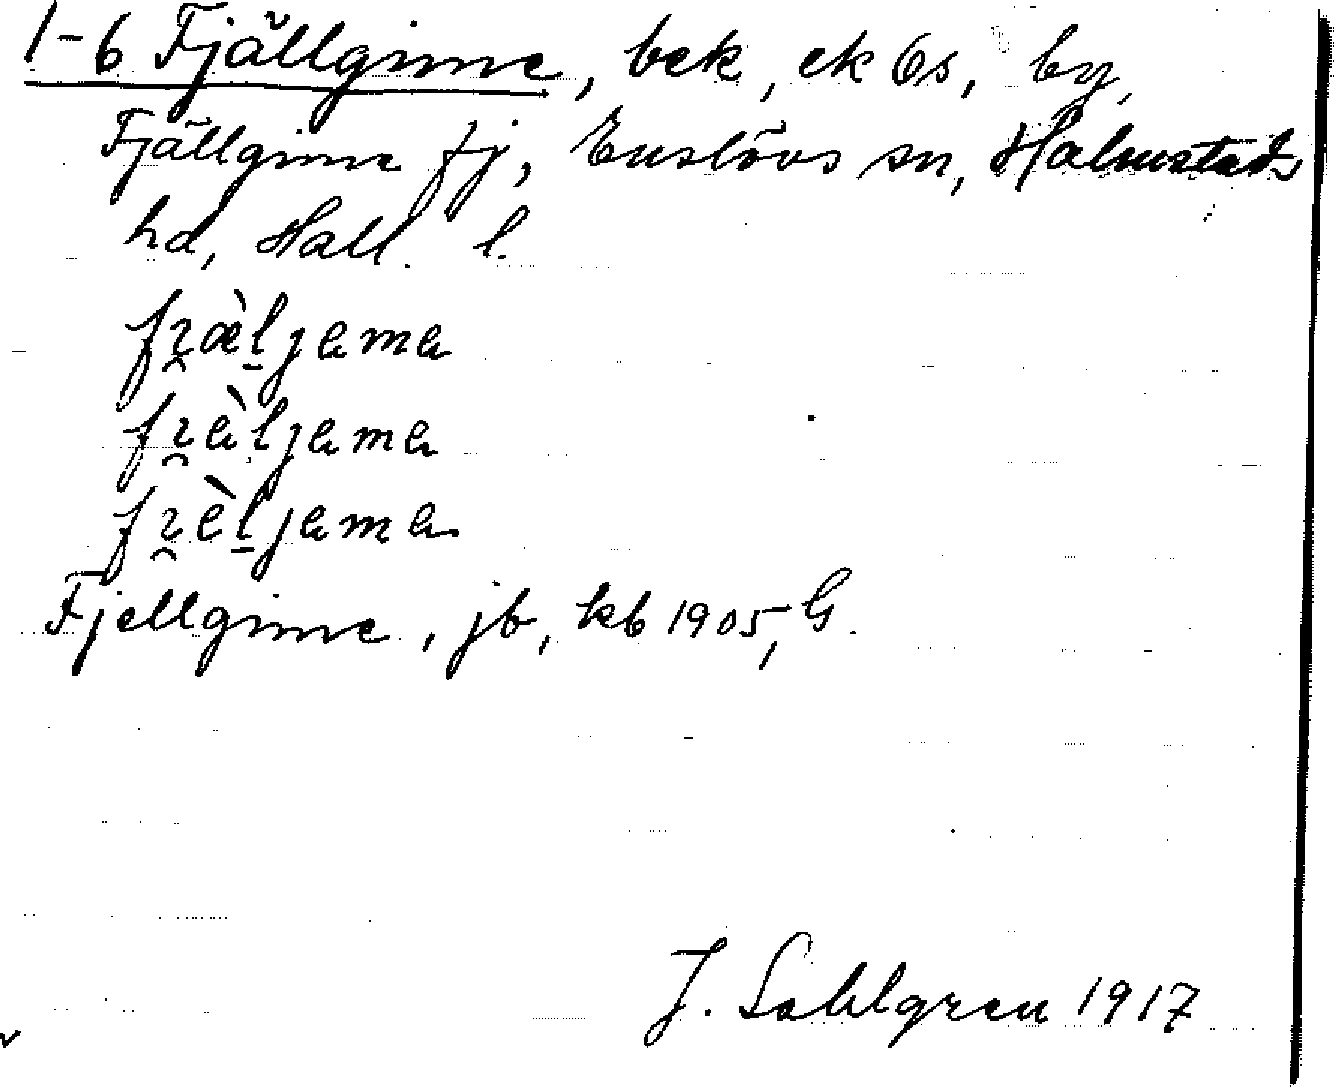 1-6 Fjällginne, bek, ek 6s, by,
Fjällginne fj, Enslövs sn, Halmstads
hd, Hall. l.
fɪ̯æ̀l̠jɐmɐ
fɪ̯ɐ̀ljɐmɐ
fɪ̯èl̠jɐmɐ
Fjellginne, jb, kb 1905, G.
J. Sahlgren 1917